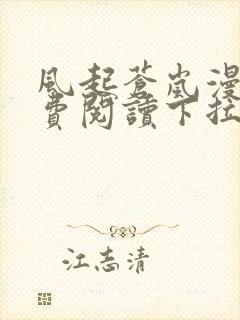 風起蒼嵐漫
費閱讀下拉
江志清